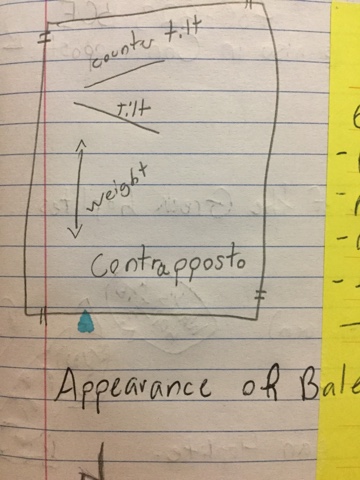 counter tilt
tilt
weight
Contrapposto
Appearance of Bale